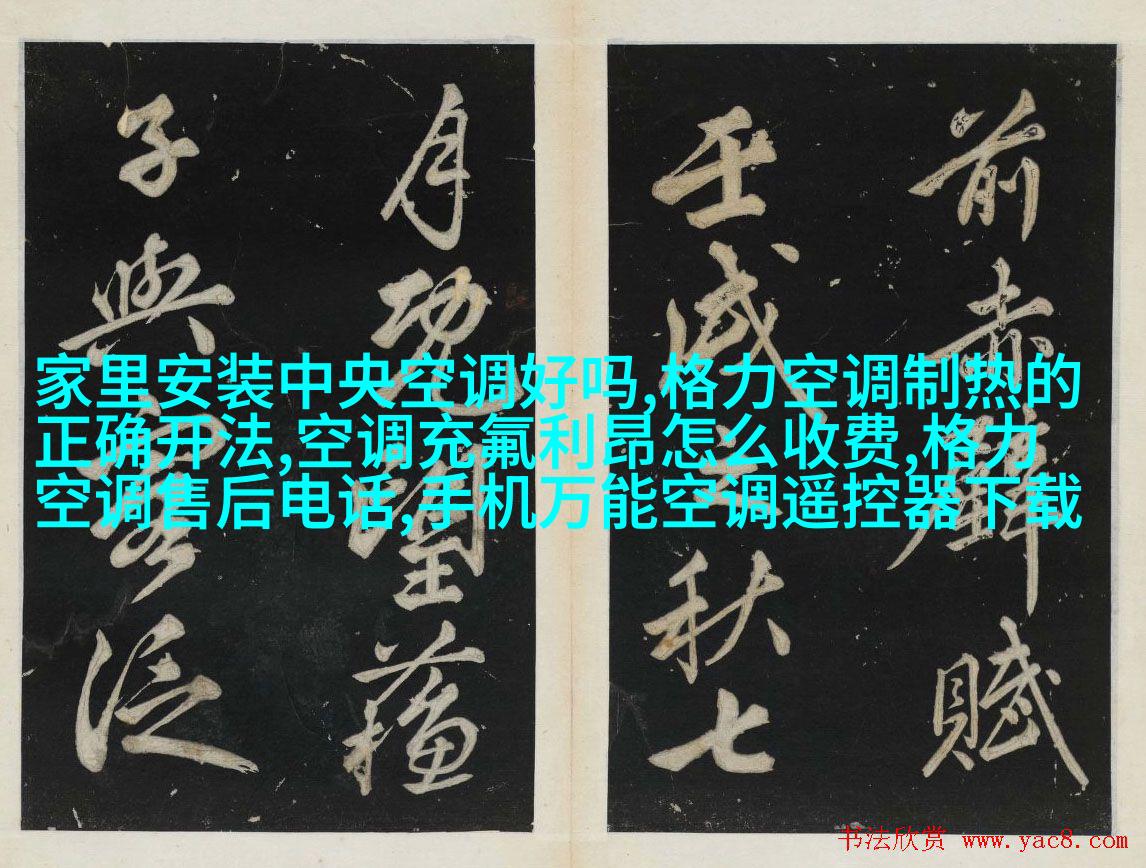 家里安装中央空调好吗,格力空调制热的
正确开法,空调充氟利昂怎么收费,格力
空调售后电话,手机万能空调遥控器下载
前赤壁賦
壬戌之秋七
月既望蘓
子與客泛
书法欣赏 www.yac8.com